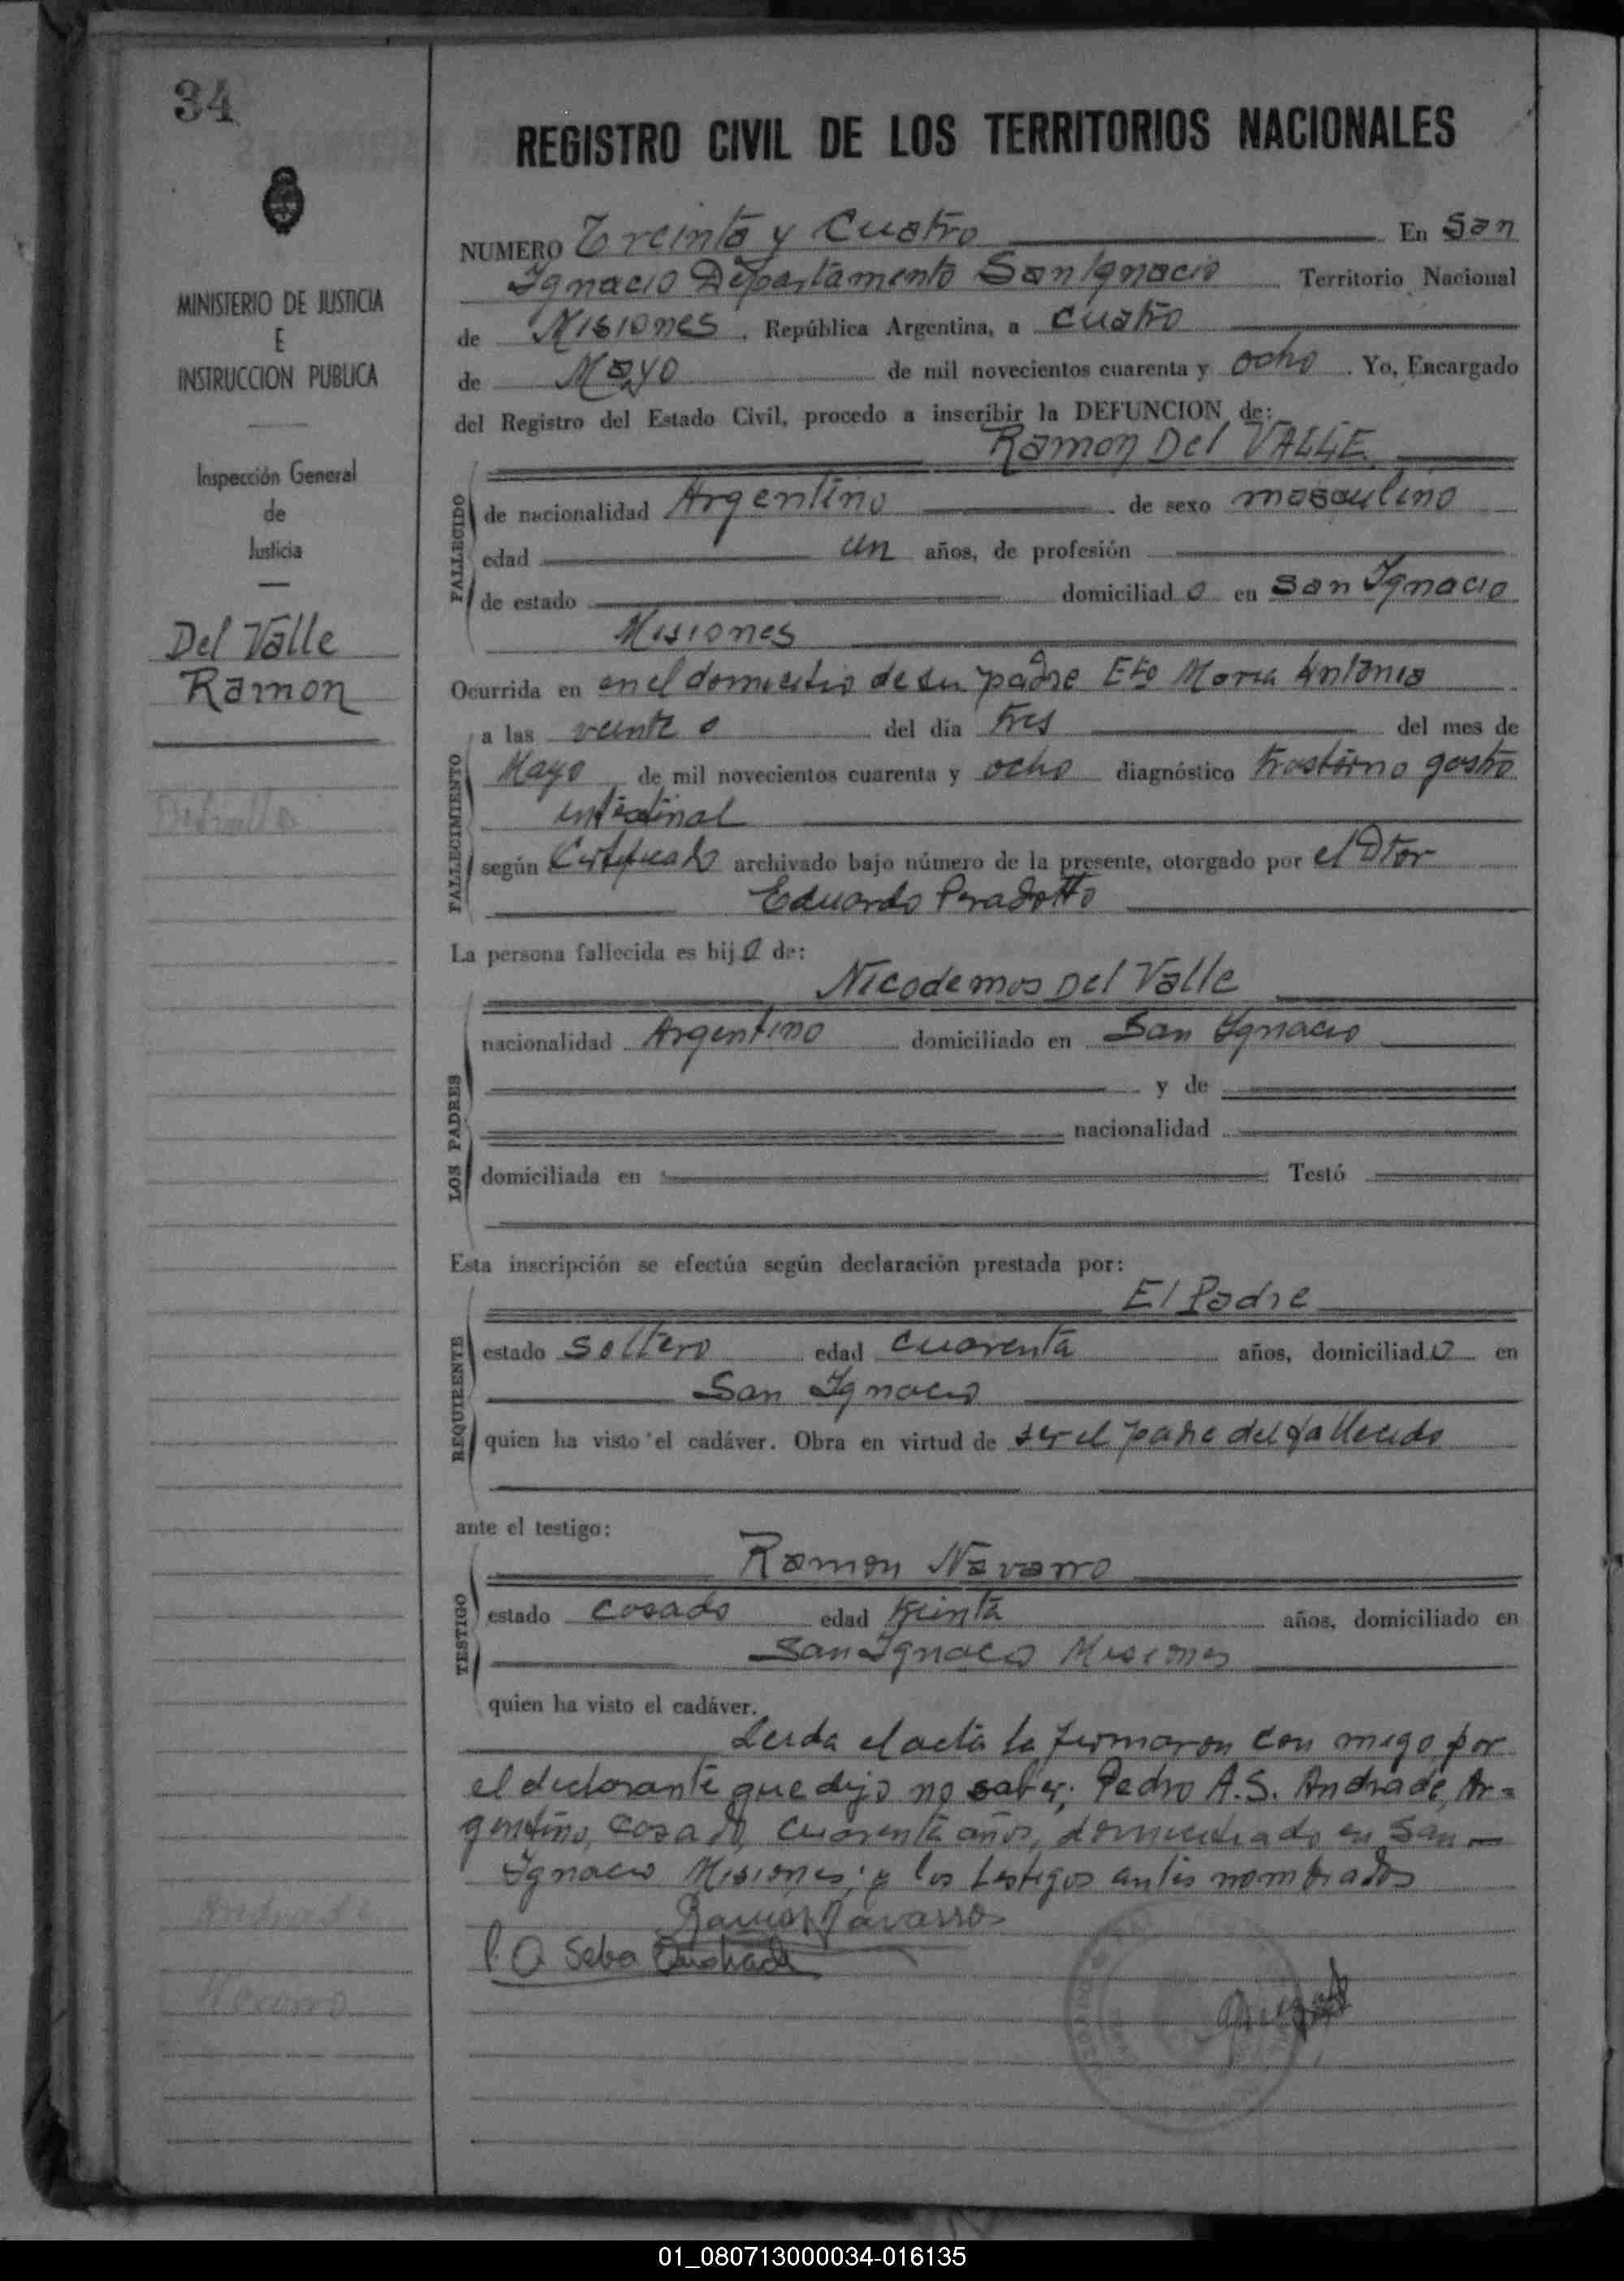 34
REGISTRO CIVIL DE LOS TERRITORIOS NACIONALES
MINISTERIO DE JUSTICIA
E
INSTRUCCION PUBLICA
Inspección General
de
Justicia
Del Valle
Ramon
NUMERO Treinta y Cuatro En San
Ignacio Departamento San Ignacio Territorio Nacional
de Misiones, República Argentina, a cuatro
de Mayo de mil novecientos cuarenta y ocho. Yo, Encargado
del Registro del Estado Civil, procedo a inscribir la DEFUNCION de:
Ramon Del VALLE
FALLECIDO
de nacionalidad Argentino de sexo masculino
edad un años, de profesión
de estado domiciliado en San Ignacio
Misiones
Ocurrida en en el domicilio de su padre Eto Maria Antonia
FALLECIMIENTO
a las veinte o del día tres del mes de
Mayo de mil novecientos cuarenta y ocho diagnóstico trastorno gastro
intestinal
según Certificado archivado bajo número de la presente, otorgado por el Dtor
Eduardo Peradotto
La persona fallecida es hijo de:
Nicodemos Del Valle
LOS PADRES
nacionalidad Argentino domiciliado en San Ignacio
y de
nacionalidad
domiciliada en Testó
Esta inscripción se efectúa según declaración prestada por:
El Padre
REQUIRENTE
estado soltero edad cuarenta años, domiciliado en
San Ignacio
quien ha visto el cadáver. Obra en virtud de ser el padre del fallecido
ante el testigo:
Ramon Navarro
TESTIGO
estado casado edad treinta años, domiciliado en
San Ignacio Misiones
quien ha visto el cadáver.
Leida el acta la firmaron con migo por
el declarante que dijo no saber; Pedro A.S. Andrade, Ar=
gentino, casado, cuarenta años, domiciliado en San
Ignacio Misiones; y los testigos antes nombrados
Ramon Navarro
P. A Seba Andrade
Andrade
Navarro
01_080713000034-016135